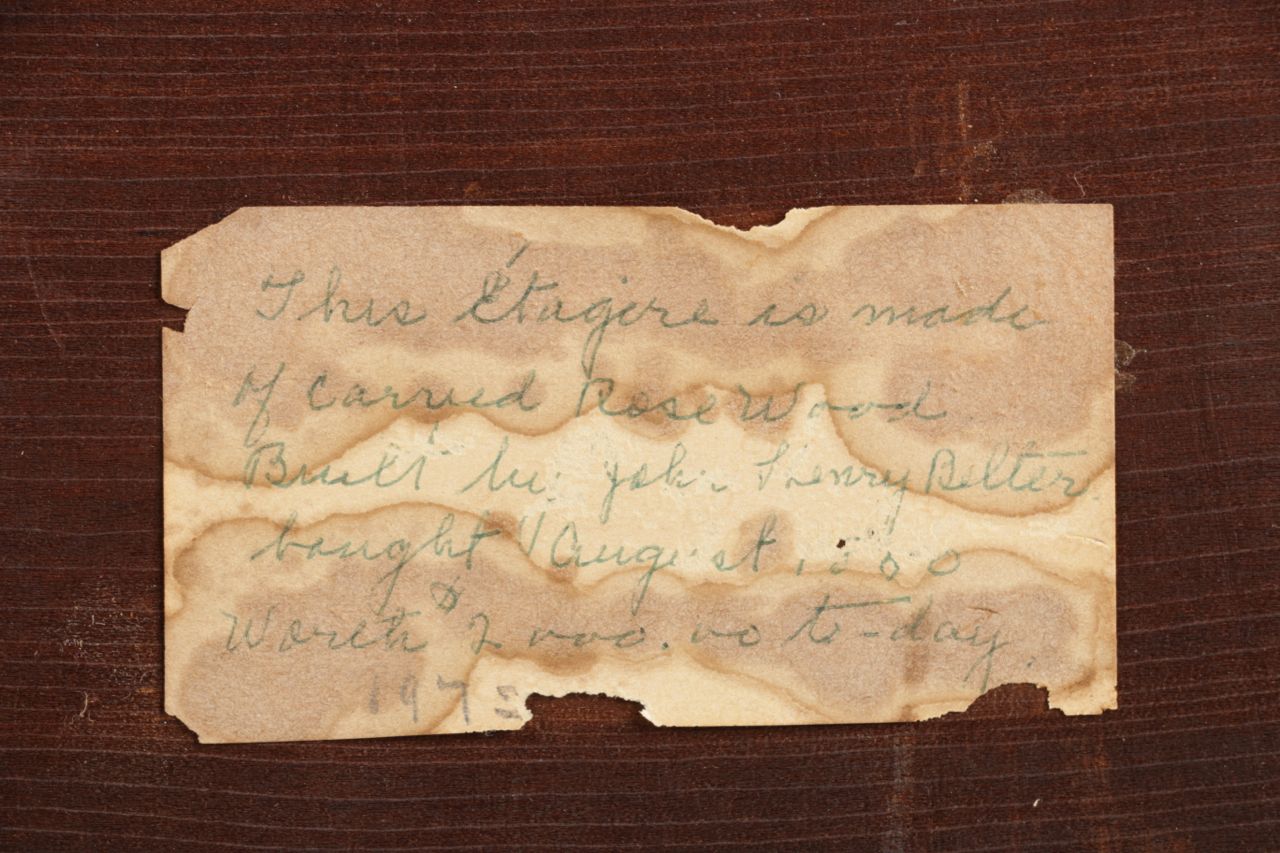 This Étagere is made
of Carved Rose Wood
Built by John Henry Belter.
bought August
Worth $2000.00 to-day.
197